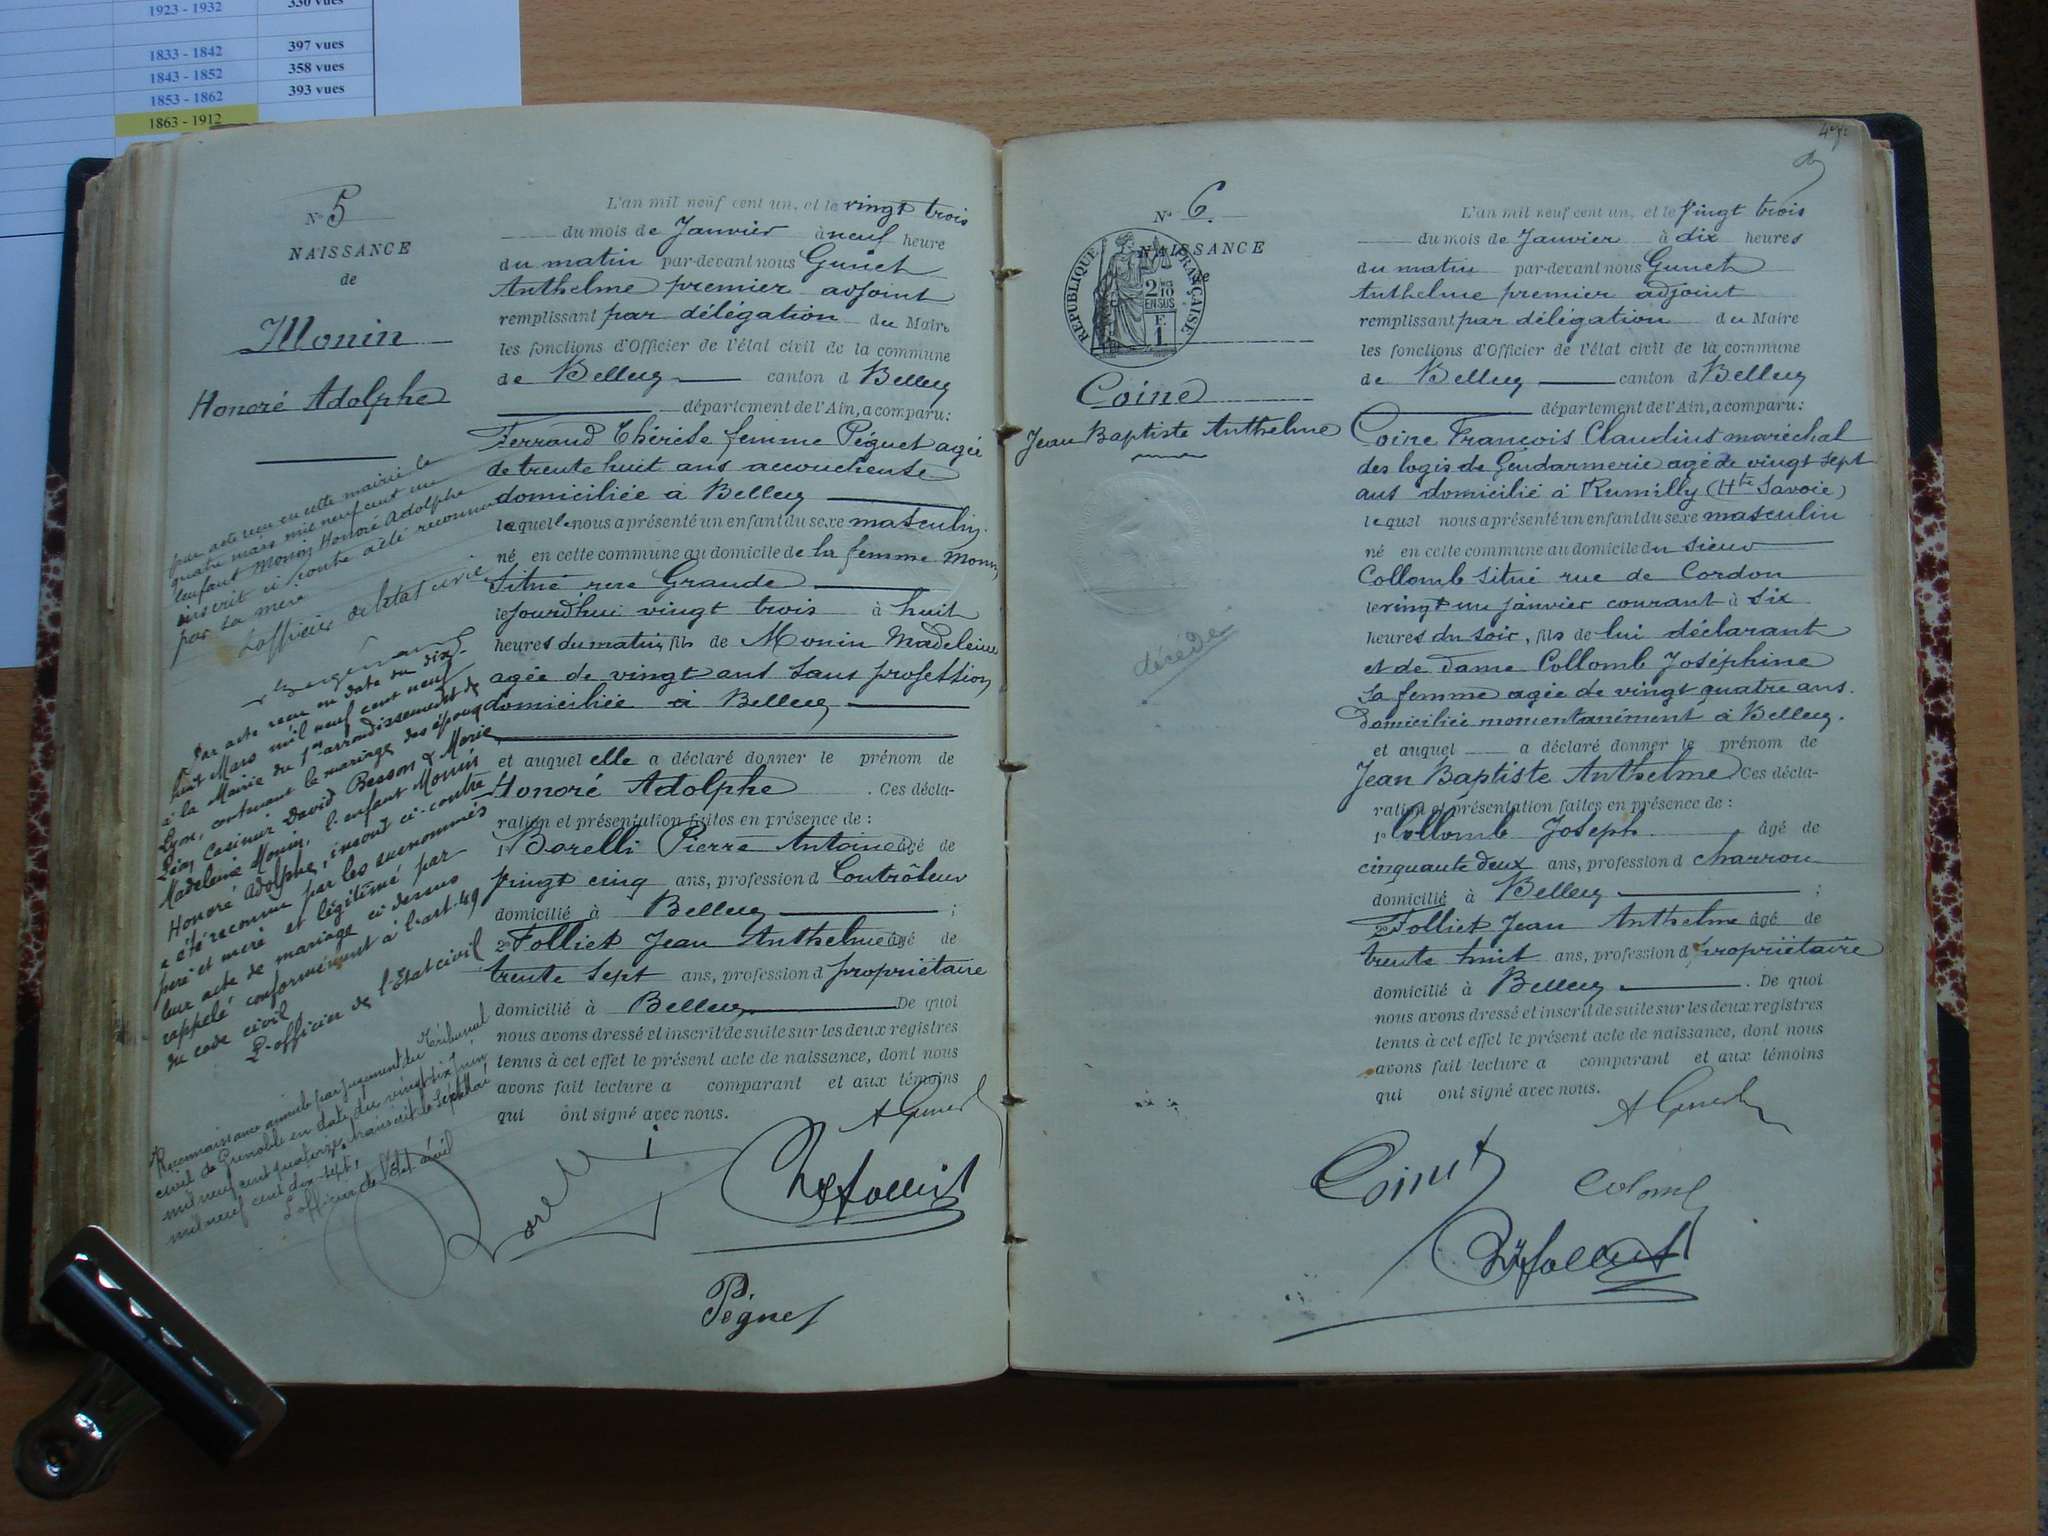 1923 - 1932
330 vues
1833 - 1842
397 vues
1843 - 1852
358 vues
1853 - 1862
393 vues
1863 - 1912
N° 5
NAISSANCE
de
Monin
Honoré Adolphe
par acte reçu en cette mairie le
quatre mars mil neuf cent un
l'enfant Monin Honoré Adolphe
inscrit ci contre a été reconnu
par sa mère
L'officier de l'état civil
Par acte reçu en date du dix-
huit Mars mil neuf cent neuf
à la Mairie du 1er arrondissement de
Lyon, contenant le mariage des époux
Léon Casimir David Besson & Marie
Madeleine Monin, l'enfant Monin
Honoré Adolphe, inscrit ci-contre
a été reconnu par les susnommés
père et mère et légitimé par
leur acte de mariage ci dessus
rappelé conformément à l'art. 49
du code civil
L'officier de l'Etat civil
Reconnaissance annulée par jugement du Tribunal
civil de Grenoble en date du vingt-six juin
mil neuf cent quatorze, transcrit le sept Mai
mil neuf cent dix-sept,
L'officier de l'Etat civil
L'an mil neuf cent un, et le vingt trois
du mois de Janvier à neuf heure
du matin par-devant nous Gunet
Anthelme premier adjoint
remplissant par délégation du Maire
les fonctions d'Officier de l'état civil de la commune
de Belley canton d Belley
département de l'Ain, a comparu :
Ferrand Thérèse femme Péguet agée
de trente huit ans accoucheuse
domiciliée à Belley
laquelle nous a présenté un enfant du sexe masculin
né en cette commune au domicile de la femme Monin
situé rue Grande
le jourd'hui vingt trois à huit
heures du matin, fils de Monin Madeleine
agée de vingt ans sans profession
domiciliée à Belley
et auquel elle a déclaré donner le prénom de
Honoré Adolphe . Ces décla-
ration et présentation faites en présence de :
1° Borelli Pierre Antoine âgé de
vingt cinq ans, profession d Contrôleur
domicilié à Belley ;
2° Folliet Jean Anthelme âgé de
trente sept ans, profession d propriétaire
domicilié à Belley De quoi
nous avons dressé et inscrit de suite sur les deux registres
tenus à cet effet le présent acte de naissance, dont nous
avons fait lecture a comparant et aux témoins
qui ont signé avec nous.
A Gunet
Borelli
Péguet
N° 6.
NAISSANCE
RÉPUBLIQUE FRANÇAISE
2 10
EN SUS
F.
1
Coine
Jean Baptiste Anthelme
décédé
L'an mil neuf cent un, et le vingt trois
du mois de Janvier à dix heures
du matin par-devant nous Gunet
Anthelme premier adjoint
remplissant par délégation du Maire
les fonctions d'Officier de l'état civil de la commune
de Belley canton d Belley
département de l'Ain, a comparu :
Coine François Claudius maréchal
des logis de Gendarmerie agé de vingt sept
ans domicilié à Rumilly (Hte Savoie)
lequel nous a présenté un enfant du sexe masculin
né en cette commune au domicile du sieur
Collomb situé rue de Cordon
le vingt un janvier courant à six
heures du soir, fils de lui déclarant
et de Dame Collomb Joséphine
sa femme agée de vingt quatre ans.
domiciliée momentanément à Belley.
et auquel a déclaré donner le prénom de
Jean Baptiste Anthelme Ces décla-
ration et présentation faites en présence de :
1° Collomb Joseph âgé de
cinquante deux ans, profession d charron
domicilié à Belley ;
2° Folliet Jean Anthelme âgé de
trente huit ans, profession d propriétaire
domicilié à Belley . De quoi
nous avons dressé et inscrit de suite sur les deux registres
tenus à cet effet le présent acte de naissance, dont nous
avons fait lecture a comparant et aux témoins
qui ont signé avec nous.
A Gunet